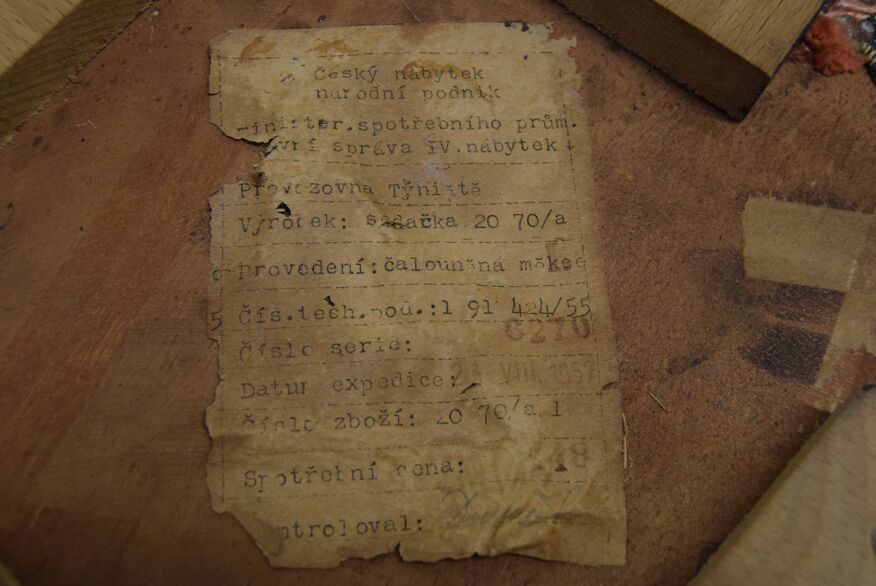 Český nábytek
národní podnik
minister.spotřebního prům.
vní správa IV.nábytek
Provozovna Týniště
Výrobek: Sedačka 20 70/a
Provedení:čalouněná měkce
Čís.tech.pod.:1 91 424/55
6270
Číslo serie:
Datum expedice: VIII.1957
Číslo zboží: 20 70/a 1
Spotřební cena:
ntroloval: